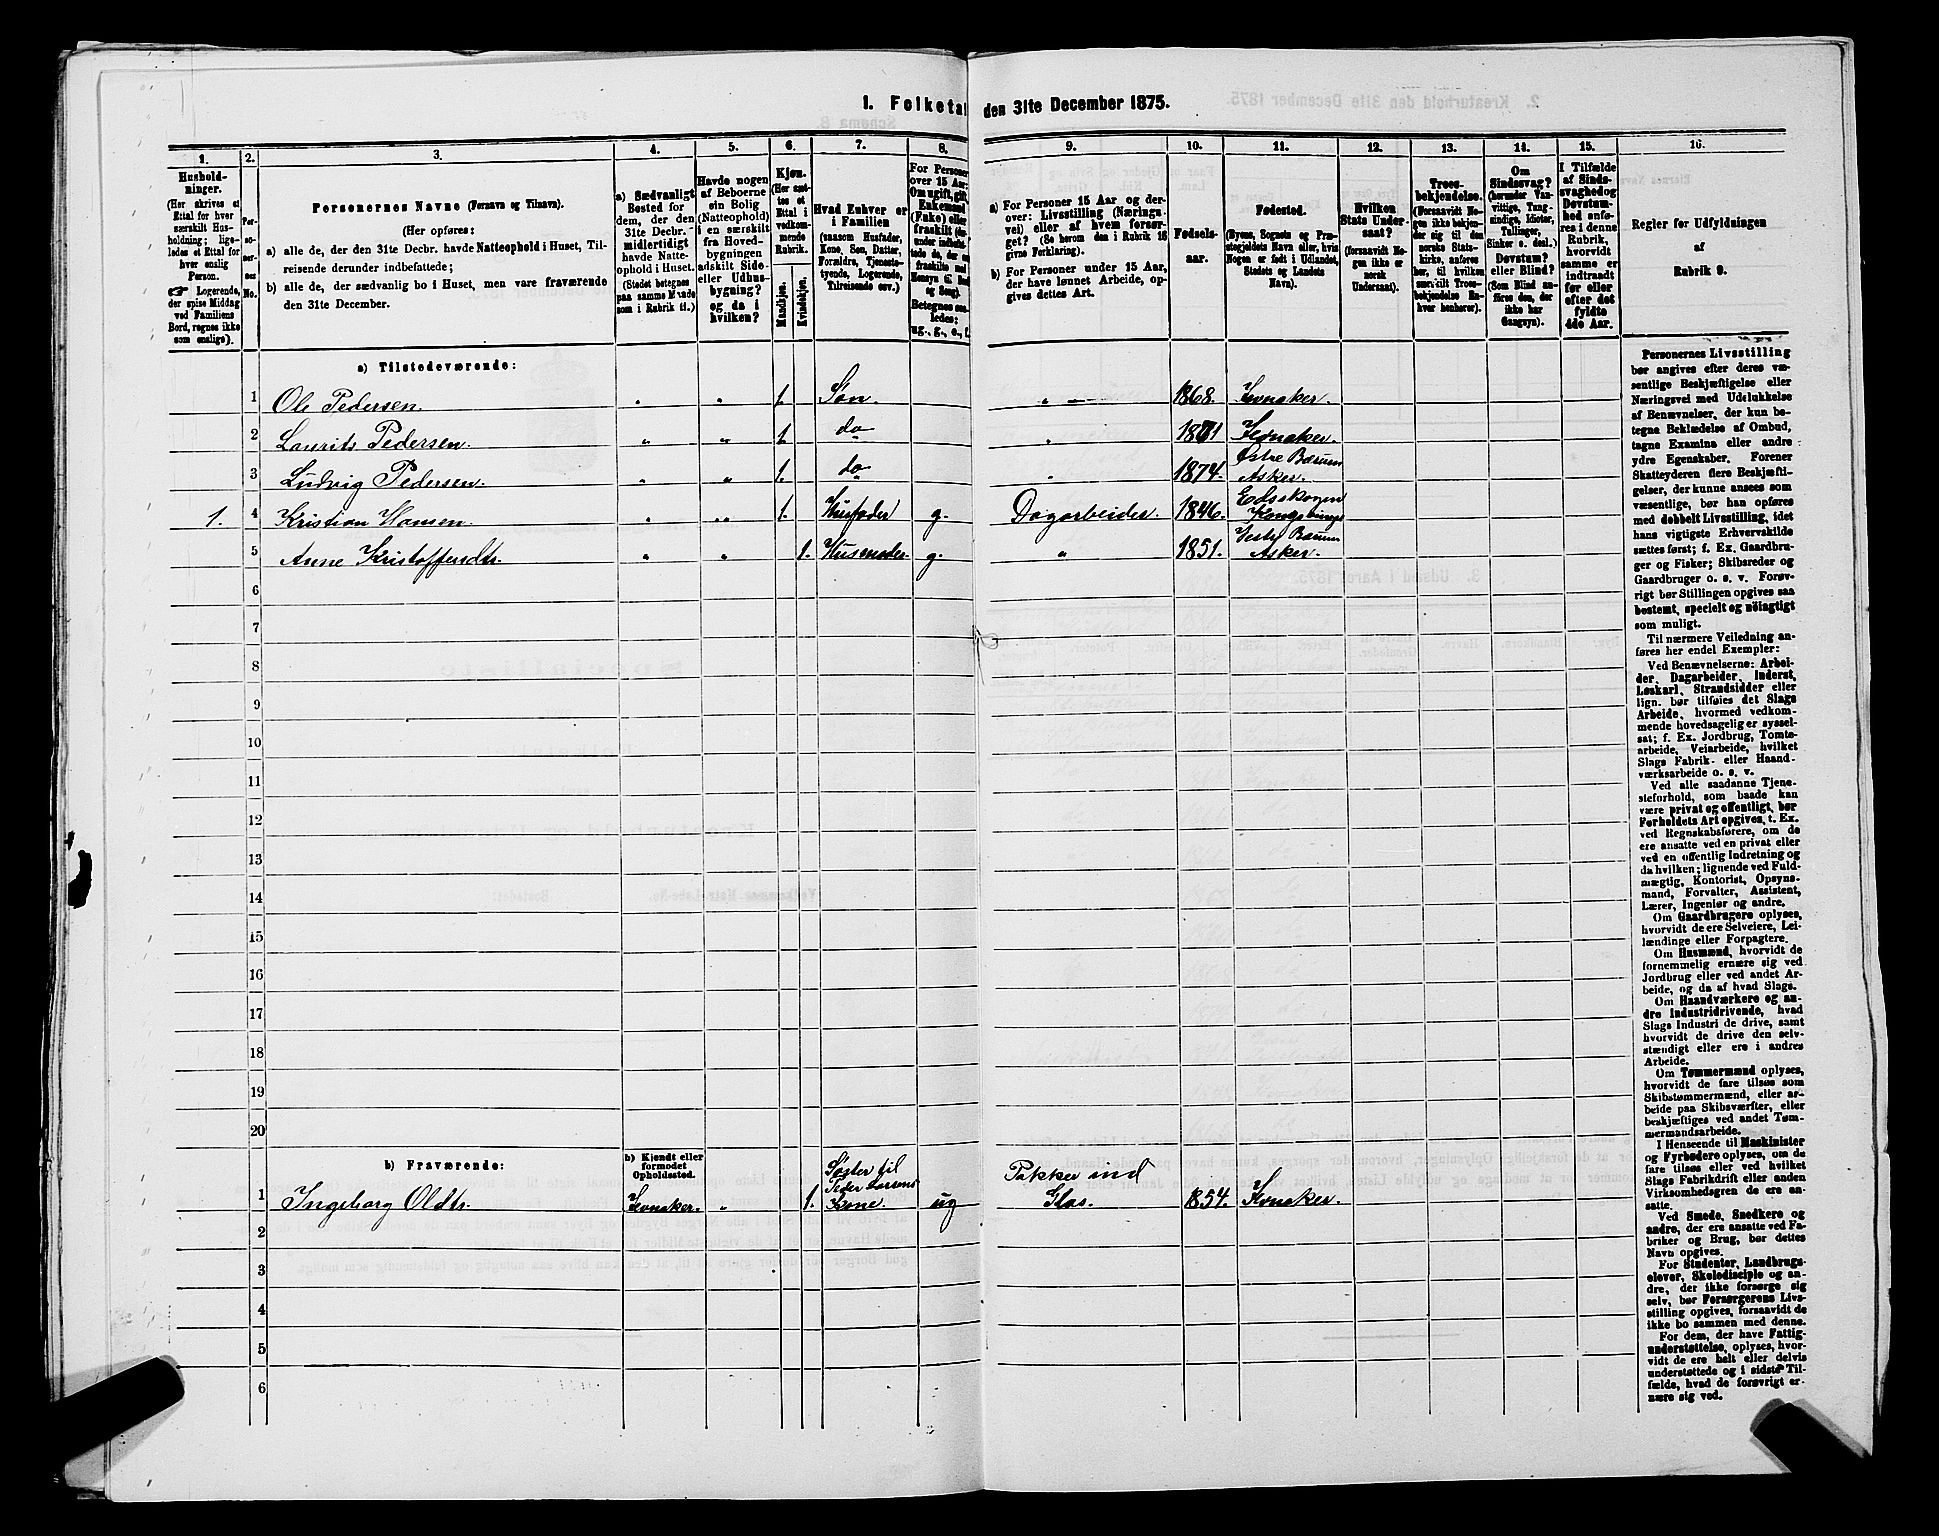 1. Folketal den 31te December 1875.
1.
2.
3.
4.
5.
6.
7.
8.
9.
10.
11.
12.
13.
14.
15.
16.
Hushold-
ninger.
(Her skrives et
Ettal for hver
særskilt Hus-
holdning; lige-
ledes et Ettal for
hver enslig
Person.
☞ Logerende,
der spise Middag
ved Familiens
Bord, regnes ikke
som enslige).
Per-
so-
ner-
nes
No.
Personernes Navne (Fornavn og Tilnavn).
(Her opføres:
a) alle de, der den 31te Decbr. havde Natteophold i Huset, Til-
reisende derunder indbefattede;
b) alle de, der sædvanlig bo i Huset, men vare fraværende
den 31te December.
a) Sædvanligt
Bosted for
dem, der den
31te Decbr.
midlertidigt
havde Natte-
ophold i Huset.
(Stedet betegnes
paa samme Maade
som i Rubrik 11.)
Havde nogen
af Beboerne
sin Bolig
(Natteophold)
i en særskilt
fra Hoved-
bygningen
adskilt Side-
eller Udhus-
bygning?
og da i
hvilken?
Kjøn.
(Her sæt-
tes et
Ettal i
vedkom-
mende
Rubrik.
Mandkjøn.
Kvindekjøn.
Hvad Enhver er
i Familien
(saasom Husfader,
Kone, Søn, Datter,
Forældre, Tjeneste-
tyende, Logerende,
Tilreisende osv.)
For Personer
over 15 Aar:
Om ugift, gift,
Enkemand
(Enke) eller
fraskilt
Betegnes saa-
ledes:
ug., g., e., f.
a) For Personer 15 Aar og der-
over: Livsstilling (Nærings-
vei) eller af hvem forsør-
get? (Se herom den i Rubrik 16
givne Forklaring).
b) For Personer under 15 Aar,
der have lønnet Arbeide, op-
gives dettes Art.
Fødsels-
aar.
Fødested.
(Byens, Sognets og Præ-
stegjeldets Navn eller, hvis
Nogen er født i Udlandet,
Stedets og Landets
Navn).
Hvilken
Stats Under-
saat?
(forsaavidt No-
gen ikke er
norsk
Undersaat).
Troes-
bekjendelse.
(Forsaavidt No-
gen ikke bekjen-
der sig til den
norske Stats-
kirke, anføres
her, til hvilken
særskilt Troes-
bekjendelse En-
hver henhører).
Om
Sindssvag?
(herunder Van-
vittige, Tung-
sindige, Idioter,
Sinker o. desl.)
Døvstum?
eller Blind?
(Som Blind an-
føres den, der
ikke har
Gangsyn).
I Tilfælde
af Sinds-
svaghed og
Døvstum-
hed anfø-
res i denne
Rubrik,
hvorvidt
samme er
indtraadt
før eller
efter det
fyldte
4de Aar.
Regler for Udfyldningen
af
Rubrik 9.
a) Tilstedeværende:
1 Ole Pedersen. " " 1. Søn. " 1868. Jevnaker.
2 Laurits Pedersen. " " 1. do " 1871 Jevnaker.
3 Ludvig Pedersen. " " 1. do " 1874. Østre Bærum Asker.
1. 4 Kristian Hansen. " " 1. Husfader g. Dagarbeider. 1846. Edsskogen Kongsvinger
5 Anne Kristoffersdtr. " " 1. Husmoder g. " 1851. Vestre Bærum Asker.
6
7
8
9
10
11
12
13
14
15
16
17
18
19
20
b) Fraværende:
b) Kjendt eller
formodet
Opholdssted.
1 Ingeborg Olsdtr. Jevnaker. " 1. Søster til Peder Larsens Kone. ug Pakker ind Glas. 1854. Jevnaker.
2
3
4
5
6
Personernes Livsstilling
bør angives efter deres væ-
sentlige Beskjæftigelse eller
Næringsvei med Udelukkelse
af Benævnelser, der kun be-
tegne Beklædelse af Ombud,
tagne Examina eller andre
ydre Egenskaber. Forener
Skatteyderen flere Beskjæfti-
gelser, der kunne ansees som
væsentlige, bør han opføres
med dobbelt Livsstilling, idet
hans vigtigste Erhvervskilde
sættes først; f. Ex. Gaardbru-
ger og Fisker; Skibsreder og
Gaardbruger o. s. v. Forøv-
rigt bør Stillingen opgives saa
bestemt, specielt og nöiagtigt
som muligt.
Til nærmere Veiledning an-
føres her endel Exempler:
Ved Benævnelserne: Arbei-
der, Dagarbeider, Inderst,
Løskarl, Strandsidder eller
lign. bør tilføies det Slags
Arbeide, hvormed vedkom-
mende hovedsagelig er syssel-
sat; f. Ex. Jordbrug, Tomte-
arbeide, Veiarbeide, hvilket
Slags Fabrik- eller Haand-
værksarbeide o. s. v.
Ved alle saadanne Tjene-
steforhold, som baade kan
være privat og offentligt, bør
Forholdets Art opgives, t. Ex.
ved Regnskabsførere, om de
ere ansatte ved en privat eller
ved en offentlig Indretning og
da hvilken; lignende ved Fuld-
mægtig, Kontorist, Opsyns-
mand, Forvalter, Assistent,
Lærer, Ingeniør og andre.
Om Gaardbrugere oplyses,
hvorvidt de ere Selveiere, Lei-
lændinge eller Forpagtere.
Om Husmænd, hvorvidt de
fornemmelig ernære sig ved
Jordbrug eller ved andet Ar-
beide, og da af hvad Slags.
Om Haandværkere og an-
dre industridrivende, hvad
Slags Industri de drive, samt
hvorvidt de drive den selv-
stændigt eller ere i andres
Arbeide.
Om Tømmermænd oplyses,
hvorvidt de fare tilsøs som
Skibstømmermænd, eller ar-
beide paa Skibsværfter, eller
beskjæftiges ved andet Tøm-
mermandsarbeide.
I Henseende til Maskinister
og Fyrbødere oplyses, om de
fare tilsøs eller ved hvilket
Slags Fabrikdrift eller anden
Virksomhed de ere an-
satte.
Ved Smede, Snedkere og
andre, der ere ansatte ved Fa-
briker og Brug, bør dettes
Navn opgives.
For Studenter, Landbrugs-
elever, Skoledisciple og an-
dre, der ikke forsørge sig
selv, bør Forsørgerens Livs-
stilling opgives, forsaavidt de
ikke bo sammen med denne.
For dem, der have Fattig-
understøttelse, oplyses, hvor-
vidt de ere helt eller delvis
understøttede og i sidste Til-
fælde, hvad de forøvrigt er-
nære sig ved.